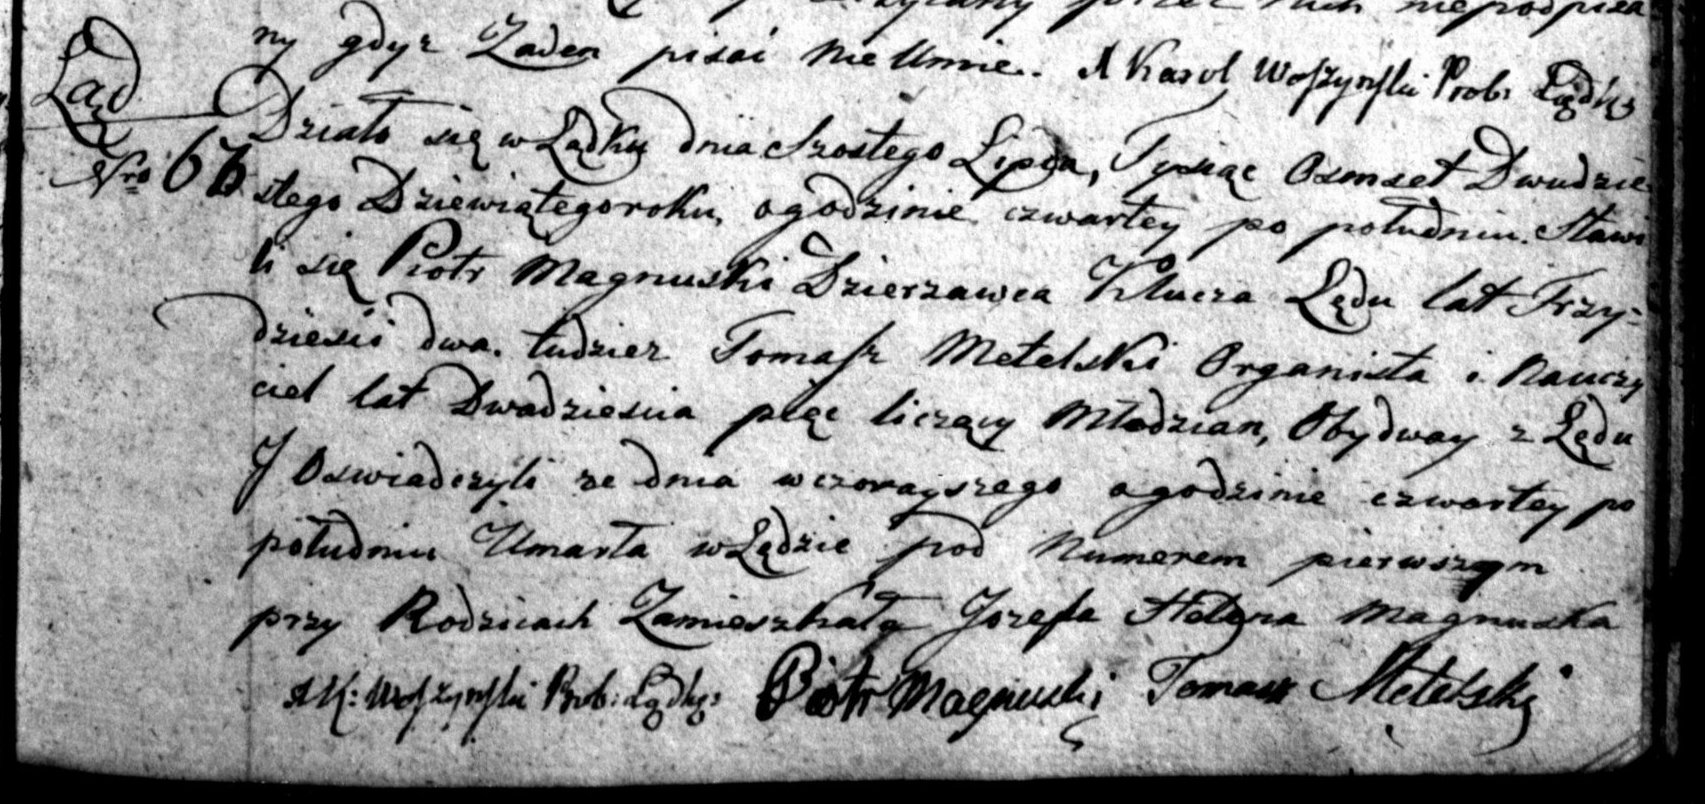 ny gdyż Zaden pisać nie Umie. X Karol Woszynski Prob: Lądkg
Ląd
Nro 67
Działo się w Lądku dnia Szostego Lipca, Tysiąc Osmset Dwudzie
stego Dziewiątego roku, o godzinie czwartey po południu. Stawi
li się Piotr Magnuski Dzierzawca Klucza Lędu lat Trzy-
dzieści dwa. tudziez Tomasz Metelski Organista i Nauczy
ciel lat Dwadziescia pięc liczący Młodzian, Obydway z Lędu
J Oswiadczyli ze dnia wczorayszego o godzinie czwartey po
południu Umarła w Lędzie pod Numerem pierwszym
przy Rodzicach Zamieszkała Jozefa Helena Magnuska
X K: Woszynski Prob: Lądkg: Piotr Magnuski Tomasz Metelski